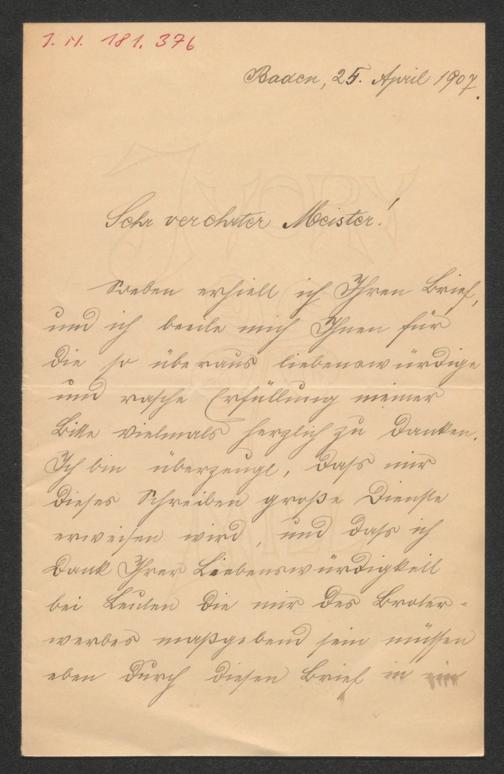 I. N. 181.376
Baden, 25. April 1907.
Sehr verehrter Meister!
Soeben erhielt ich Ihren Brief,
und ich beeile mich Ihnen für
die so überaus liebenswürdige
und rasche Erfüllung meiner
Bitte vielmals herzlich zu danken.
Ich bin überzeugt, dass mir
dieses Schreiben große Dienste
erweisen wird, und dass ich
Dank Ihrer Liebenswürdigkeit
bei Leuten die mir des Broter-
werbes maßgebend sein müssen
eben durch diesen Brief in